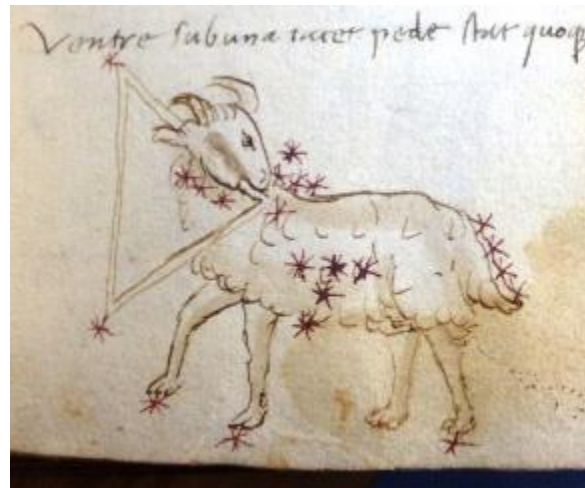 Ventre sub una iacet pede stat quoq